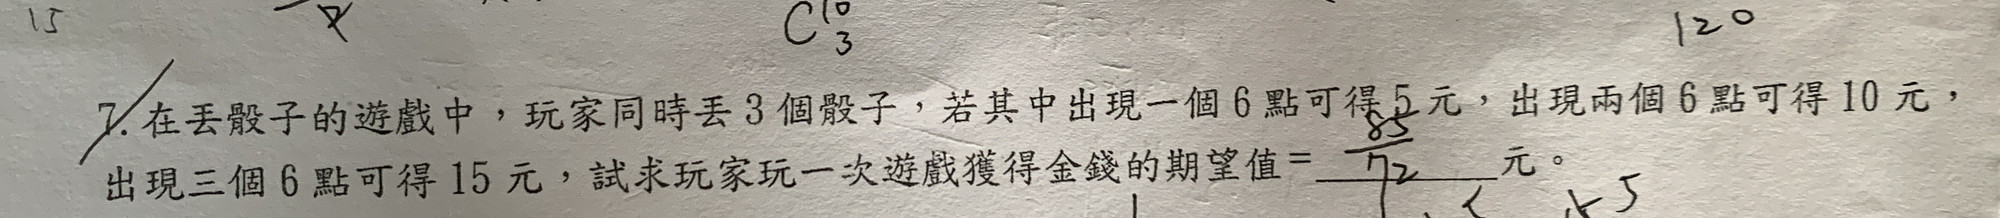 15 C 10 3 120
7. 在丟骰子的遊戲中，玩家同時丟 3 個骰子，若其中出現一個 6 點可得 5 元，出現兩個 6 點可得 10 元，
出現三個 6 點可得 15 元，試求玩家玩一次遊戲獲得金錢的期望值= 85/72 元。